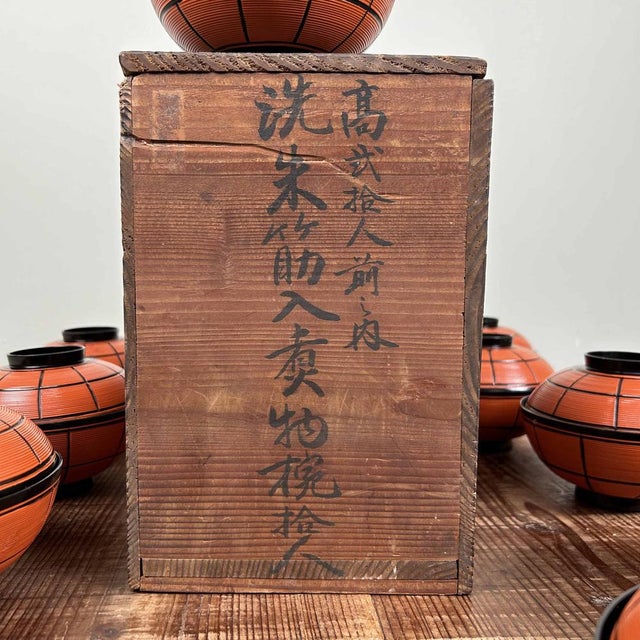 高弐拾人前之内
洗朱筋入煮物椀拾人